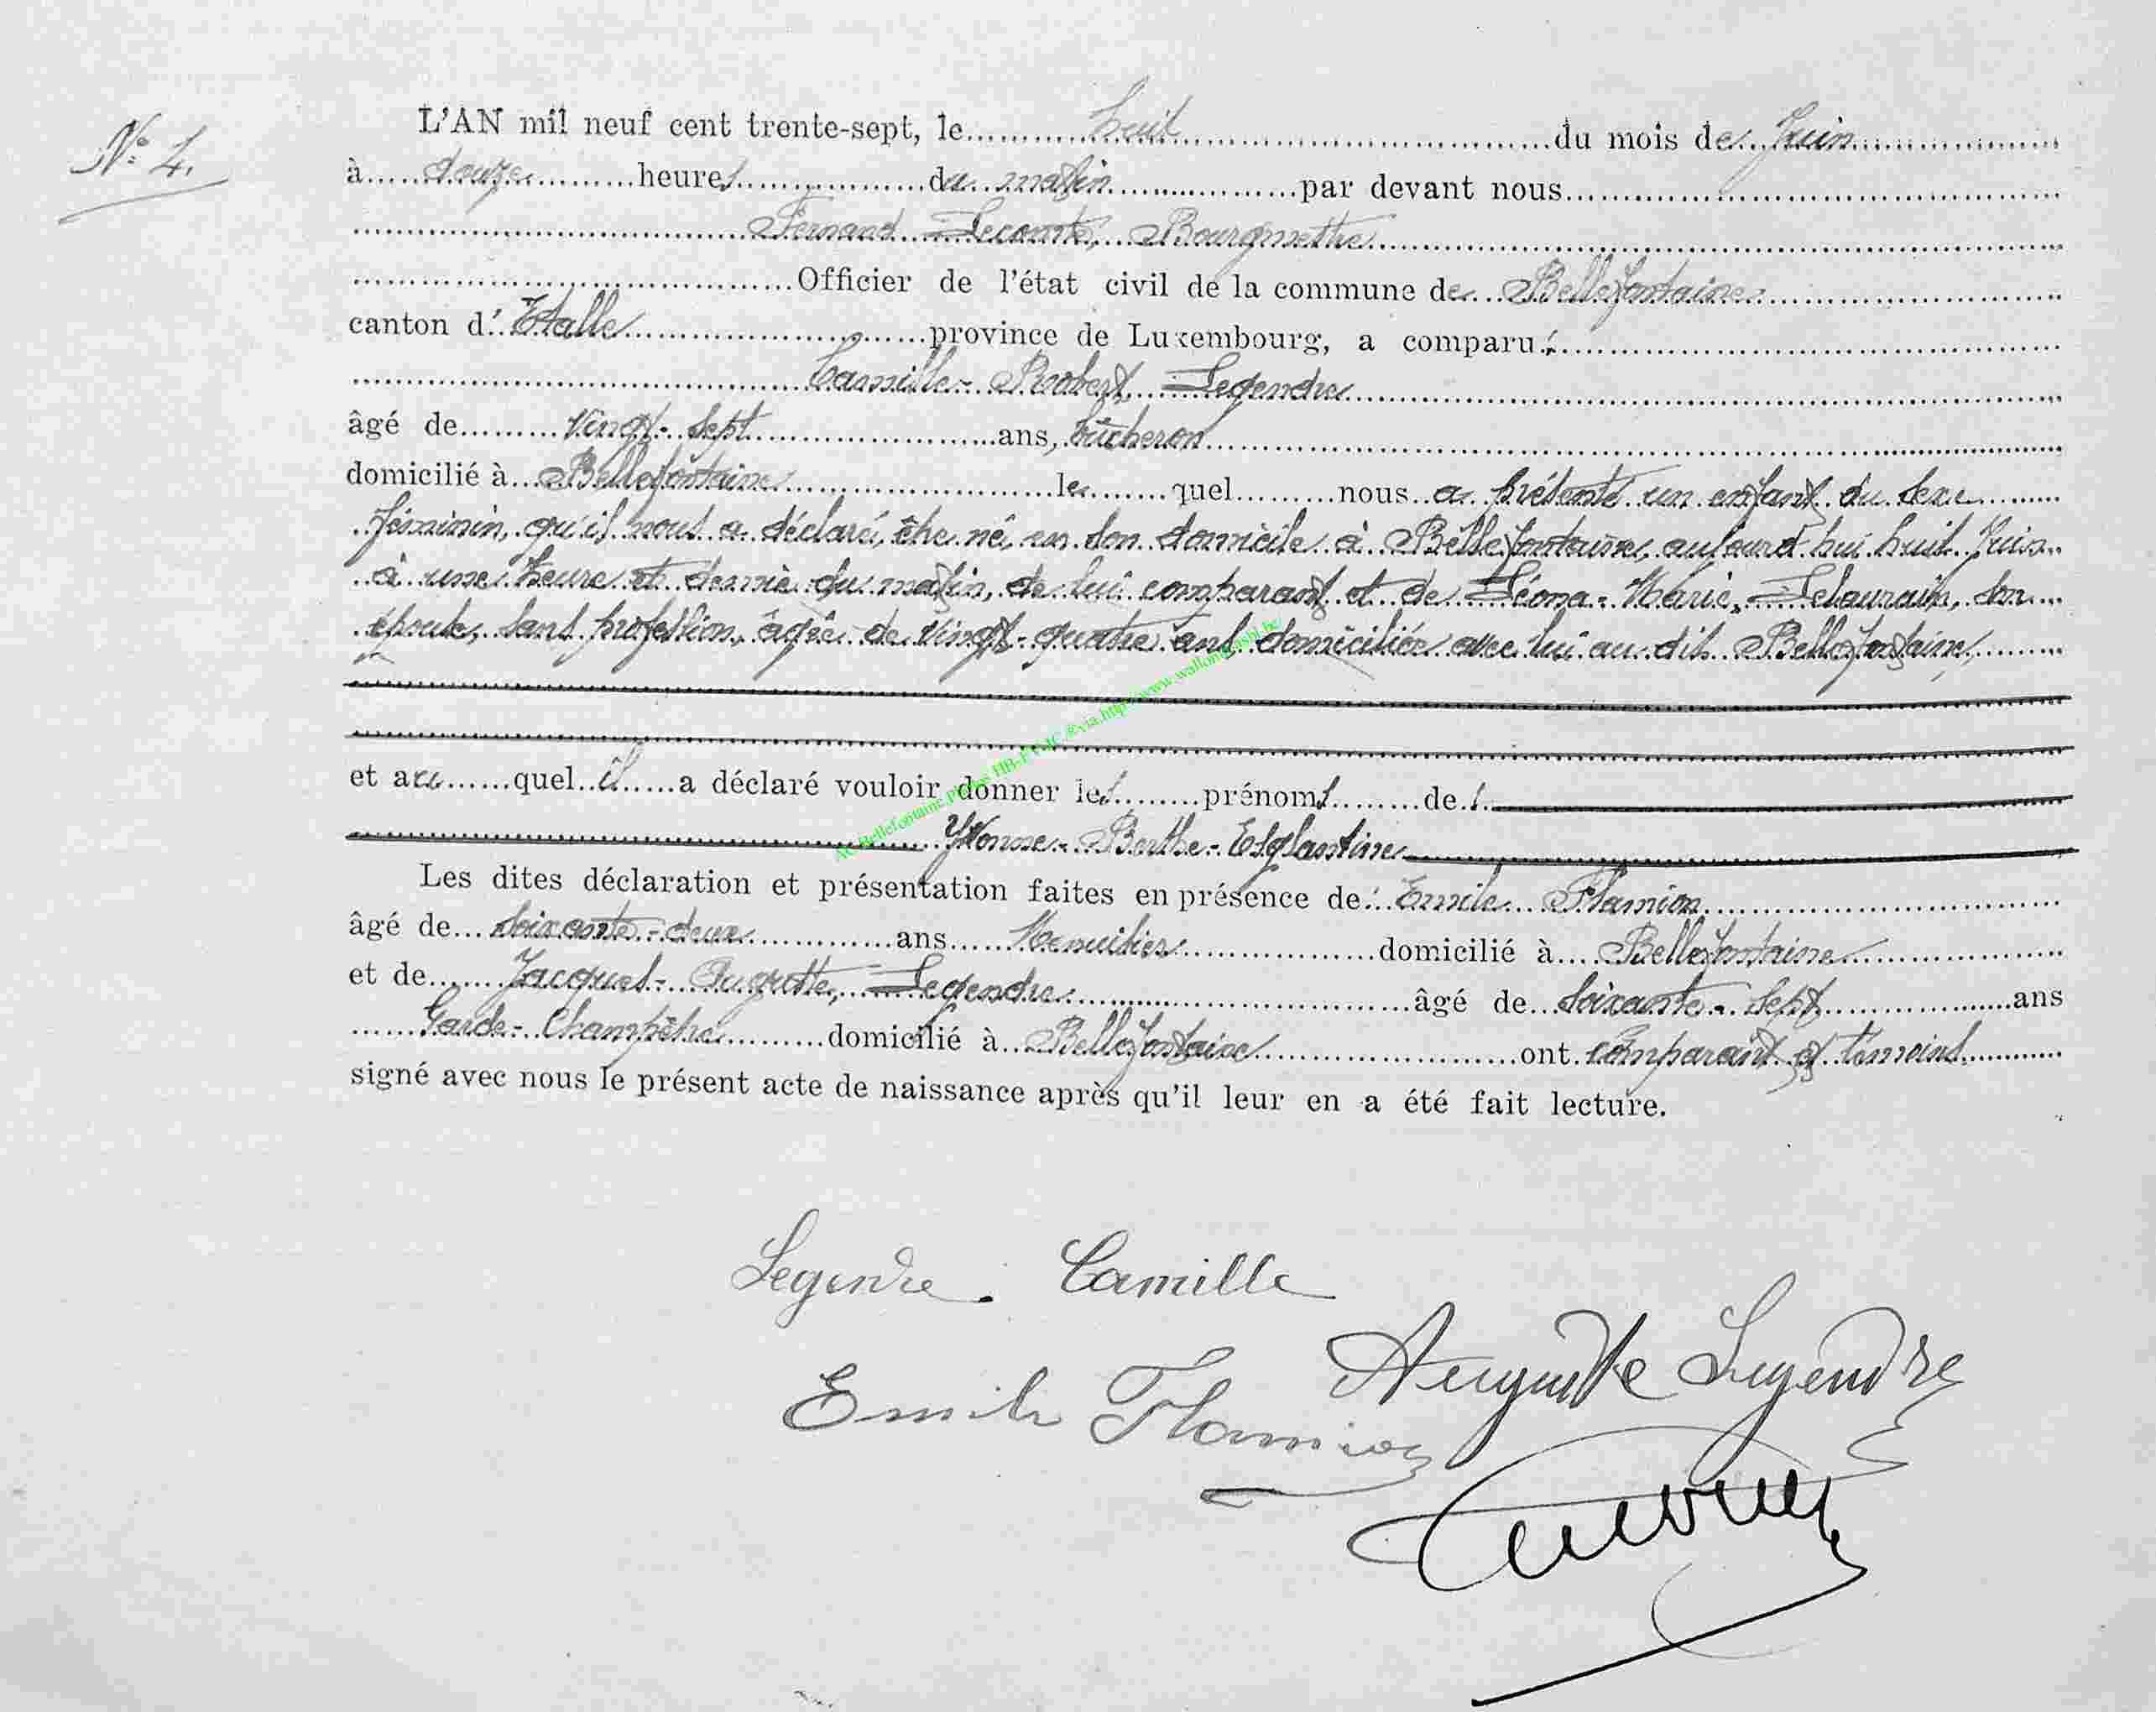 N° 4.
L'AN mil neuf cent trente-sept, le huit du mois de Juin
à douze heures du matin par devant nous
Fernand Lecomte, Bourgmestre
Officier de l'état civil de la commune de Bellefontaine
canton d'Etalle province de Luxembourg, a comparu :
Camille-Robert Legendre
âgé de vingt-sept ans, bûcheron
domicilié à Bellefontaine lequel nous a présenté un enfant du sexe
féminin, qu'il nous a déclaré, être né, en son domicile à Bellefontaine, aujourd'hui huit Juin
à une heure et demie du matin, de lui comparant et de Léona-Marie, Lelaurain, son
épouse, sans profession, âgée de vingt-quatre ans domiciliée avec lui au dit Bellefontaine,
et auquel il a déclaré vouloir donner les prénoms de :
Yvonne-Berthe-Eglantine
Les dites déclaration et présentation faites en présence de : Emile Flamion
âgé de soixante-deux ans Menuisier domicilié à Bellefontaine
et de Jacques-Auguste, Legendre âgé de soixante-sept ans
Garde-Champêtre domicilié à Bellefontaine ont comparant et témoins
signé avec nous le présent acte de naissance après qu'il leur en a été fait lecture.
Legendre. Camille
Auguste Legendre
Emile Flamion